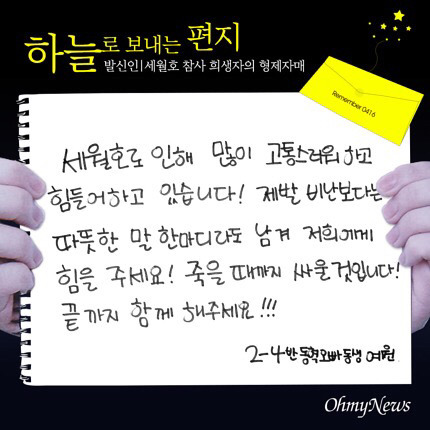 하늘로 보내는 편지
발신인|세월호 참사 희생자의 형제자매
Remember 0416
세월호로 인해 많이 고통스러워 하고
힘들어하고 있습니다! 제발 비난보다는
따뜻한 말 한마디라도 남겨 저희에게
힘을 주세요! 죽을 때까지 싸울것입니다!
끝까지 함께 해주세요!!!
2-4반 동혁오빠동생 예원
OhmyNews